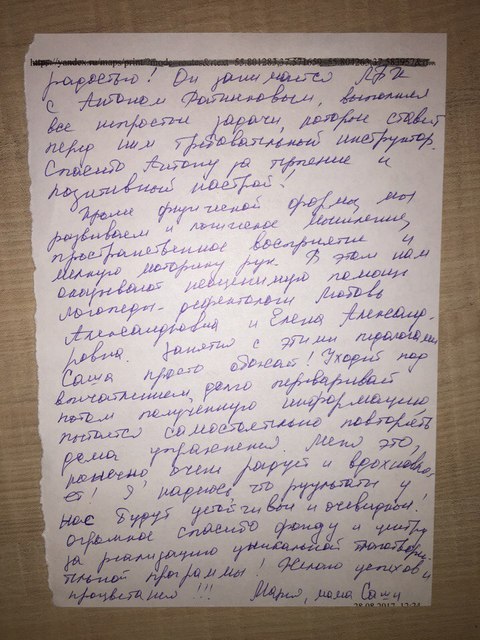 радостью! Он занимается ЛФК
с Антоном Фотинковым, выполняя
все непростые задачи, которые ставит
перед ним требовательный инструктор.
Спасибо Антону за терпение и
позитивный настрой!
Кроме физической формы, мы
развиваем и логическое мышление,
пространственное восприятие и
мелкую моторику рук. В этом нам
оказывают неоценимую помощь
логопеды-дефектологи Любовь
Александровна и Елена Александ-
ровна. Занятия с этими педагогами
Саша просто обожает! Уходит под
впечатлением, долго переваривает
потом полученную информацию,
пытается самостоятельно повторять
дома упражнения. Меня это,
конечно очень радует и вдохновля-
ет! Я надеюсь, что результаты у
нас будут устойчивы и очевидны!
Огромное спасибо фонду и центру
за реализацию уникальной благотвори-
тельной программы! Желаю успехов и
процветания!!! Мария, мама Саши
28.08.2017 12:24